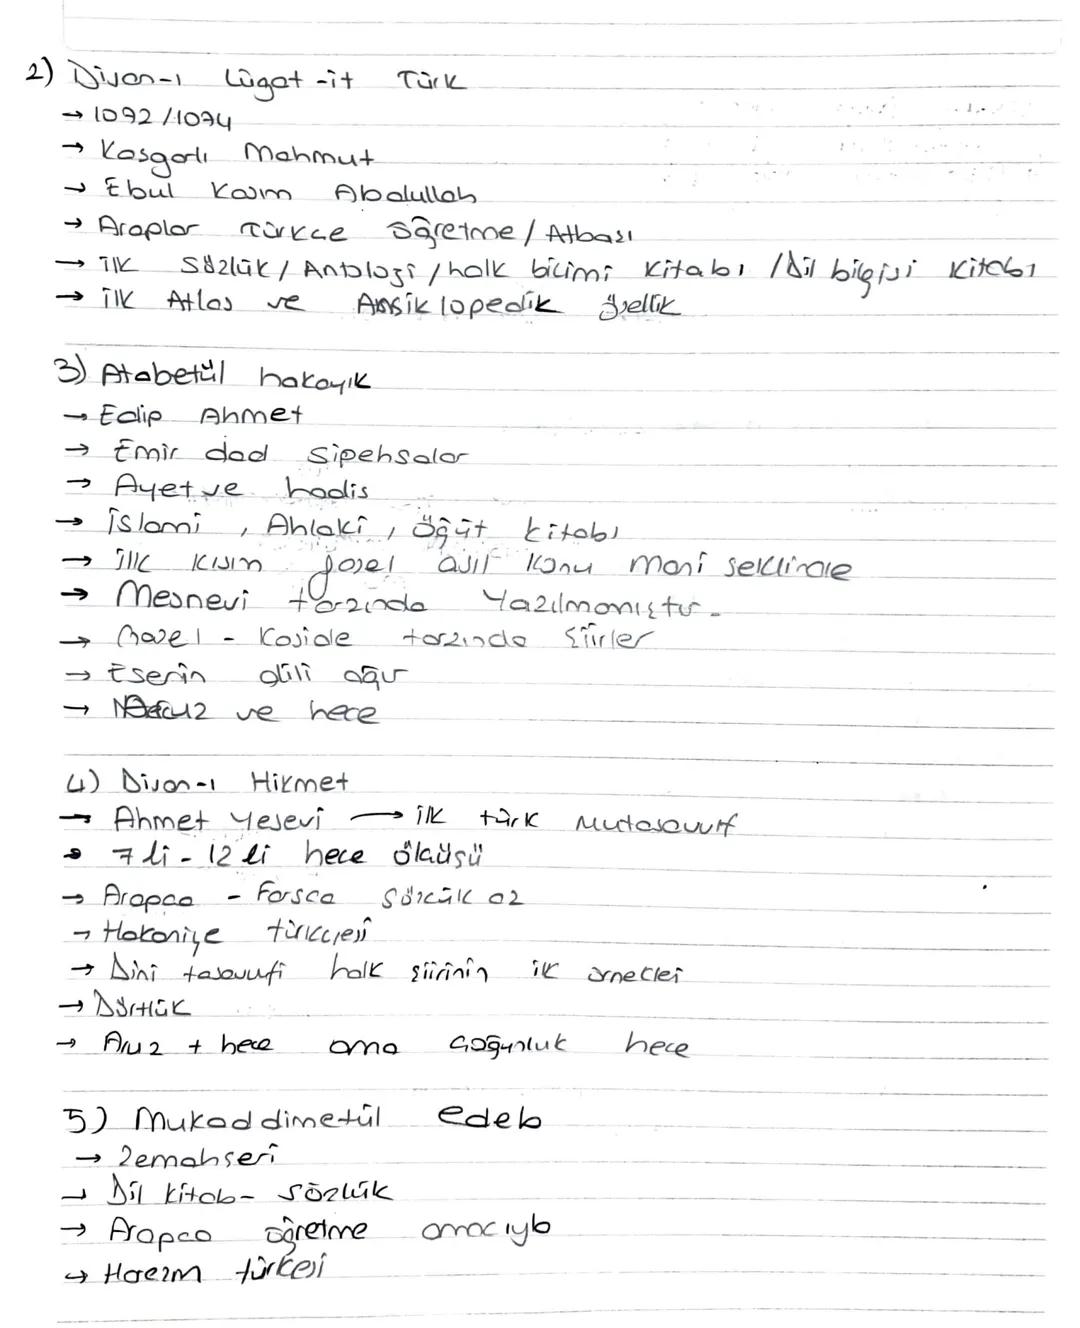 2) Divan-ı Lügat-it Türk
→ 1092/1094
→ Kasgarlı Mahmut
→ Ebul Kasım Abdullah
→ Araplar Türkçe öğretme / Atbası
→ ilk Sözlük / Antoloji / halk bicimi kitabı / Dil bilgisi kitabı
→ ilk Atlas ve Ansiklopedik özellik
3) Atabetül hakayık
→ Edip Ahmet
→ Emir dad sipehsalar
→ Ayet ve hadis
→ İslami, Ahlaki, öğüt kitabı
→ ilk kısım gazel asıl konu mani seklinde
→ Mesnevi tarzında Yazılmamıştır.
→ Gazel - Kaside tarzında şiirler
→ Eserin dili ağır
→ Aruz ve hece
4) Divan-ı Hikmet
→ Ahmet Yesevi → ilk türk mutasavvıf
→ 7 li - 12 li hece ölçüsü
→ Arapca - Farsca sözcük az
→ Hakaniye türkçesi
→ Dini tasavufi halk şiirinin ilk örnekleri
→ Dörtlük
→ Aruz + hece ama çoğunluk hece
5) Mukaddimetül edeb
→ Zemahseri
→ Dil kitab - sözlük
→ Arapca öğretme amacıyla
→ Harezm türkesi